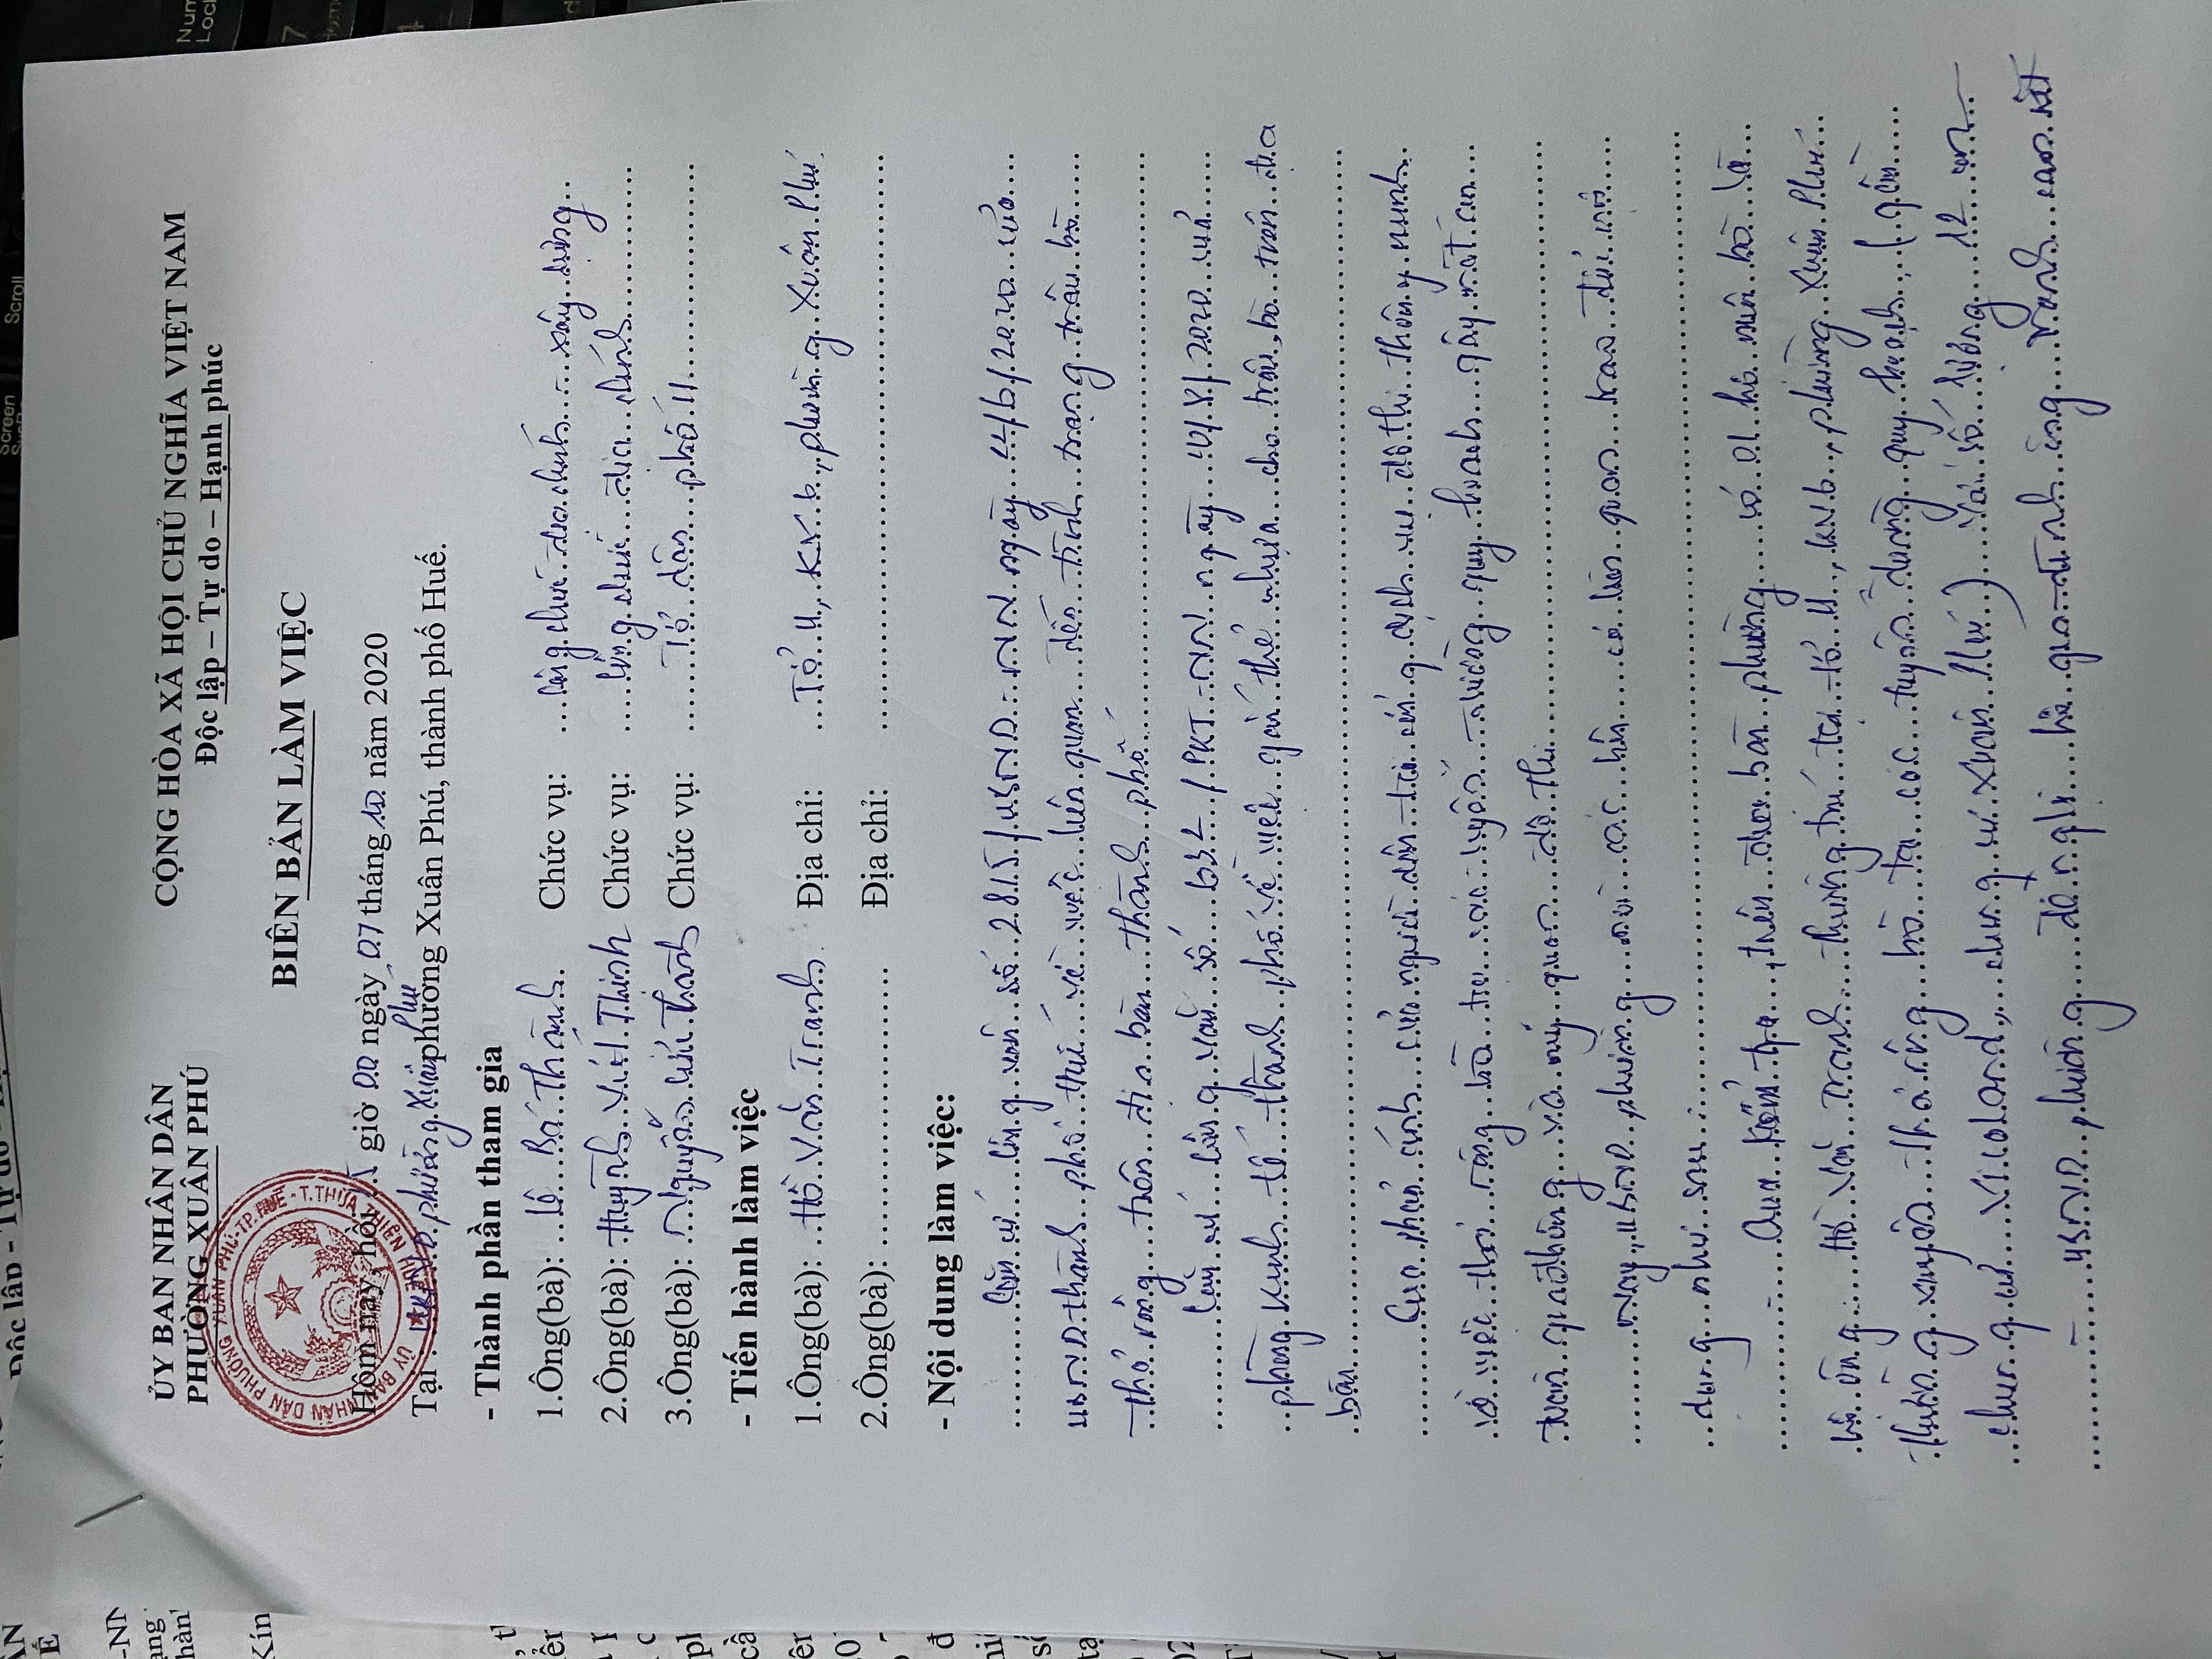 ỦY BAN NHÂN DÂN
PHƯỜNG XUÂN PHÚ
CỘNG HÒA XÃ HỘI CHỦ NGHĨA VIỆT NAM
Độc lập – Tự do – Hạnh phúc
BIÊN BẢN LÀM VIỆC
Hôm nay, hồi giờ 00 ngày 07 tháng 10 năm 2020
Tại: UBND phường Xuân Phú phường Xuân Phú, thành phố Huế.
- Thành phần tham gia
1.Ông(bà): Lê Bá Thành Chức vụ: công chức địa chính - xây dựng
2.Ông(bà): Huỳnh Viết Thinh Chức vụ: công chức địa chính
3.Ông(bà): Nguyễn Hữu Thành Chức vụ: Tổ dân phố 11
- Tiến hành làm việc
1.Ông(bà): Hồ Văn Tranh Địa chỉ: Tổ 11, KV 6, phường Xuân Phú
2.Ông(bà): Địa chỉ:
- Nội dung làm việc:
Căn cứ công văn số 2815/UBND-NN ngày /6/2020 của
UBND thành phố Huế về việc liên quan đến tình trạng trâu bò
thả rông trên địa bàn thành phố
Căn cứ công văn số 632/PKT-NN ngày 2020 của
phòng Kinh tế thành phố về việc gắn thẻ nhựa cho trâu, bò trên địa
bàn
Qua phản ánh của người dân tại cổng dịch vụ đô thị thông minh
về việc thả rông bò tại các tuyến đường quy hoạch gây mất an
toàn giao thông và mỹ quan đô thị
Nay, UBND phường mời các hộ có liên quan trao đổi nội
dung như sau:
- Qua kiểm tra, trên địa bàn phường có 01 hộ nuôi bò là
hộ ông Hồ Văn Tranh thường trú tại tổ 11, KV 6, phường Xuân Phú
thường xuyên thả rông bò tại các tuyến đường quy hoạch (gần
chung cư Vicoland, chung cư Xuân Phú) với số lượng 12 con
- UBND phường đề nghị hộ gia đình ông Tranh cam kết